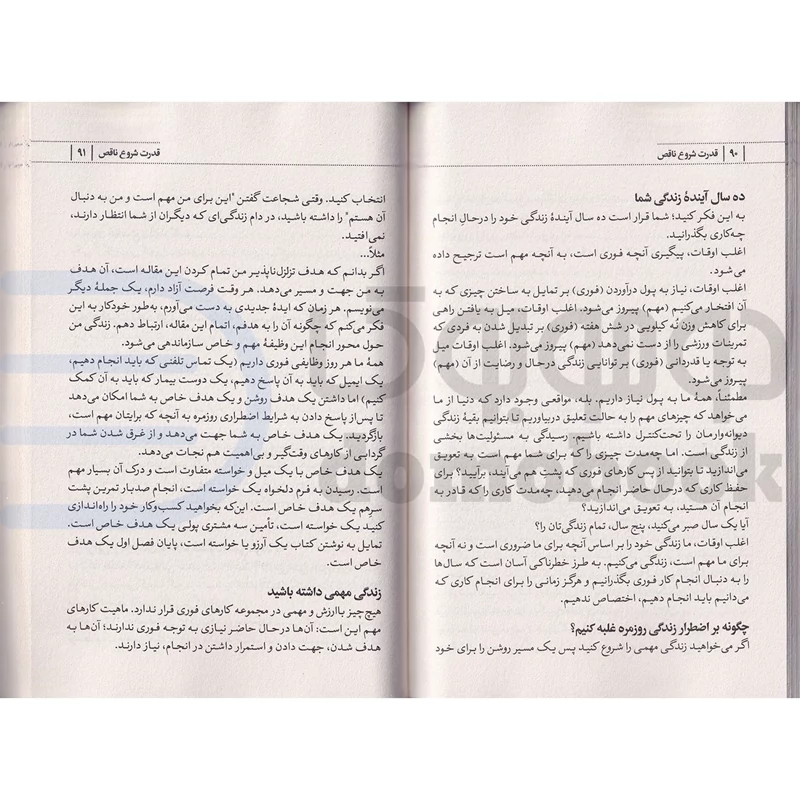 ۹۰ | قدرت شروع ناقص
ده سال آیندهٔ زندگی شما
به این فکر کنید؛ شما قرار است ده سال آیندهٔ زندگی خود را درحالِ انجام
چه‌کاری بگذرانید.
اغلب اوقات، پیگیری آنچه فوری است، به آنچه مهم است ترجیح داده
می‌شود.
اغلب اوقات، نیاز به پول درآوردن (فوری) بر تمایل به ساختن چیزی که به
آن افتخار می‌کنیم (مهم) پیروز می‌شود. اغلب اوقات، میل به یافتن راهی
برای کاهش وزن نُه کیلویی در شش هفته (فوری) بر تبدیل شدن به فردی که
تمرینات ورزشی را از دست نمی‌دهد (مهم) پیروز می‌شود. اغلب اوقات میل
به توجه یا قدردانی (فوری) بر توانایی زندگی درحال و رضایت از آن (مهم)
پیروز می‌شود.
مطمئناً، همهٔ ما به پول نیاز داریم. بله، مواقعی وجود دارد که دنیا از ما
می‌خواهد که چیزهای مهم را به حالت تعلیق دربیاوریم تا بتوانیم بقیهٔ زندگی
دیوانه‌وارمان را تحت‌کنترل داشته باشیم. رسیدگی به مسئولیت‌ها بخشی
از زندگی است. اما چه‌مدت چیزی را که برای شما مهم است به تعویق
می‌اندازید تا بتوانید از پس کارهای فوری که پشتِ هم می‌آیند، برآیید؟ برای
حفظ کاری که درحال حاضر انجام می‌دهید، چه‌مدت کاری را که قادر به
انجام آن هستید، به تعویق می‌اندازید؟
آیا یک سال صبر می‌کنید، پنج سال، تمام زندگی‌تان را؟
اغلب اوقات، ما زندگی خود را بر اساس آنچه برای ما ضروری است و نه آنچه
برای ما مهم است، زندگی می‌کنیم. به طرز خطرناکی آسان است که سال‌ها
را به دنبال انجام کار فوری بگذرانیم و هرگز زمانی را برای انجام کاری که
می‌دانیم باید انجام دهیم، اختصاص ندهیم.
چگونه بر اضطرار زندگی روزمره غلبه کنیم؟
اگر می‌خواهید زندگی مهمی را شروع کنید پس یک مسیر روشن را برای خود
قدرت شروع ناقص | ۹۱
انتخاب کنید. وقتی شجاعت گفتن "این برای من مهم است و من به دنبال
آن هستم" را داشته باشید، در دام زندگی‌ای که دیگران از شما انتظار دارند،
نمی‌افتید.
مثلاً...
اگر بدانم که هدف تزلزل‌ناپذیر من تمام کردن این مقاله است، آن هدف
به من جهت و مسیر می‌دهد. هر وقت فرصت آزاد دارم، یک جملهٔ دیگر
می‌نویسم. هر زمان که ایدهٔ جدیدی به دست می‌آورم، به‌طور خودکار به این
فکر می‌کنم که چگونه آن را به هدفم، اتمام این مقاله، ارتباط دهم. زندگی من
حول محور انجام این وظیفهٔ مهم و خاص سازماندهی می‌شود.
همهٔ ما هر روز وظایفی فوری داریم (یک تماس تلفنی که باید انجام دهیم،
یک ایمیل که باید به آن پاسخ دهیم، یک دوست بیمار که باید به آن کمک
کنیم) اما داشتن یک هدف روشن و یک هدف خاص به شما امکان می‌دهد
تا پس‌از پاسخ دادن به شرایط اضطراری روزمره به آنچه که برایتان مهم است،
بازگردید. یک هدف خاص به شما جهت می‌دهد و از غرق شدن شما در
گردابی از کارهای وقت‌گیر و بی‌اهمیت هم نجات می‌دهد.
یک هدف خاص با یک میل و خواسته متفاوت است و درک آن بسیار مهم
است. رسیدن به فرم دلخواه یک خواسته است، انجام صدبار تمرین پشت
سرهم یک هدف خاص است. این‌که بخواهید کسب‌وکار خود را راه‌اندازی
کنید یک خواسته است، تأمین سه مشتری پولی یک هدف خاص است.
تمایل به نوشتن کتاب یک آرزو یا خواسته است، پایان فصل اول یک هدف
خاص است.
زندگی مهمی داشته باشید
هیچ‌چیز باارزش و مهمی در مجموعه کارهای فوری قرار ندارد. ماهیت کارهای
مهم این است: آن‌ها درحال حاضر نیازی به توجه فوری ندارند؛ آن‌ها به
هدف شدن، جهت دادن و استمرار داشتن در انجام، نیاز دارند.